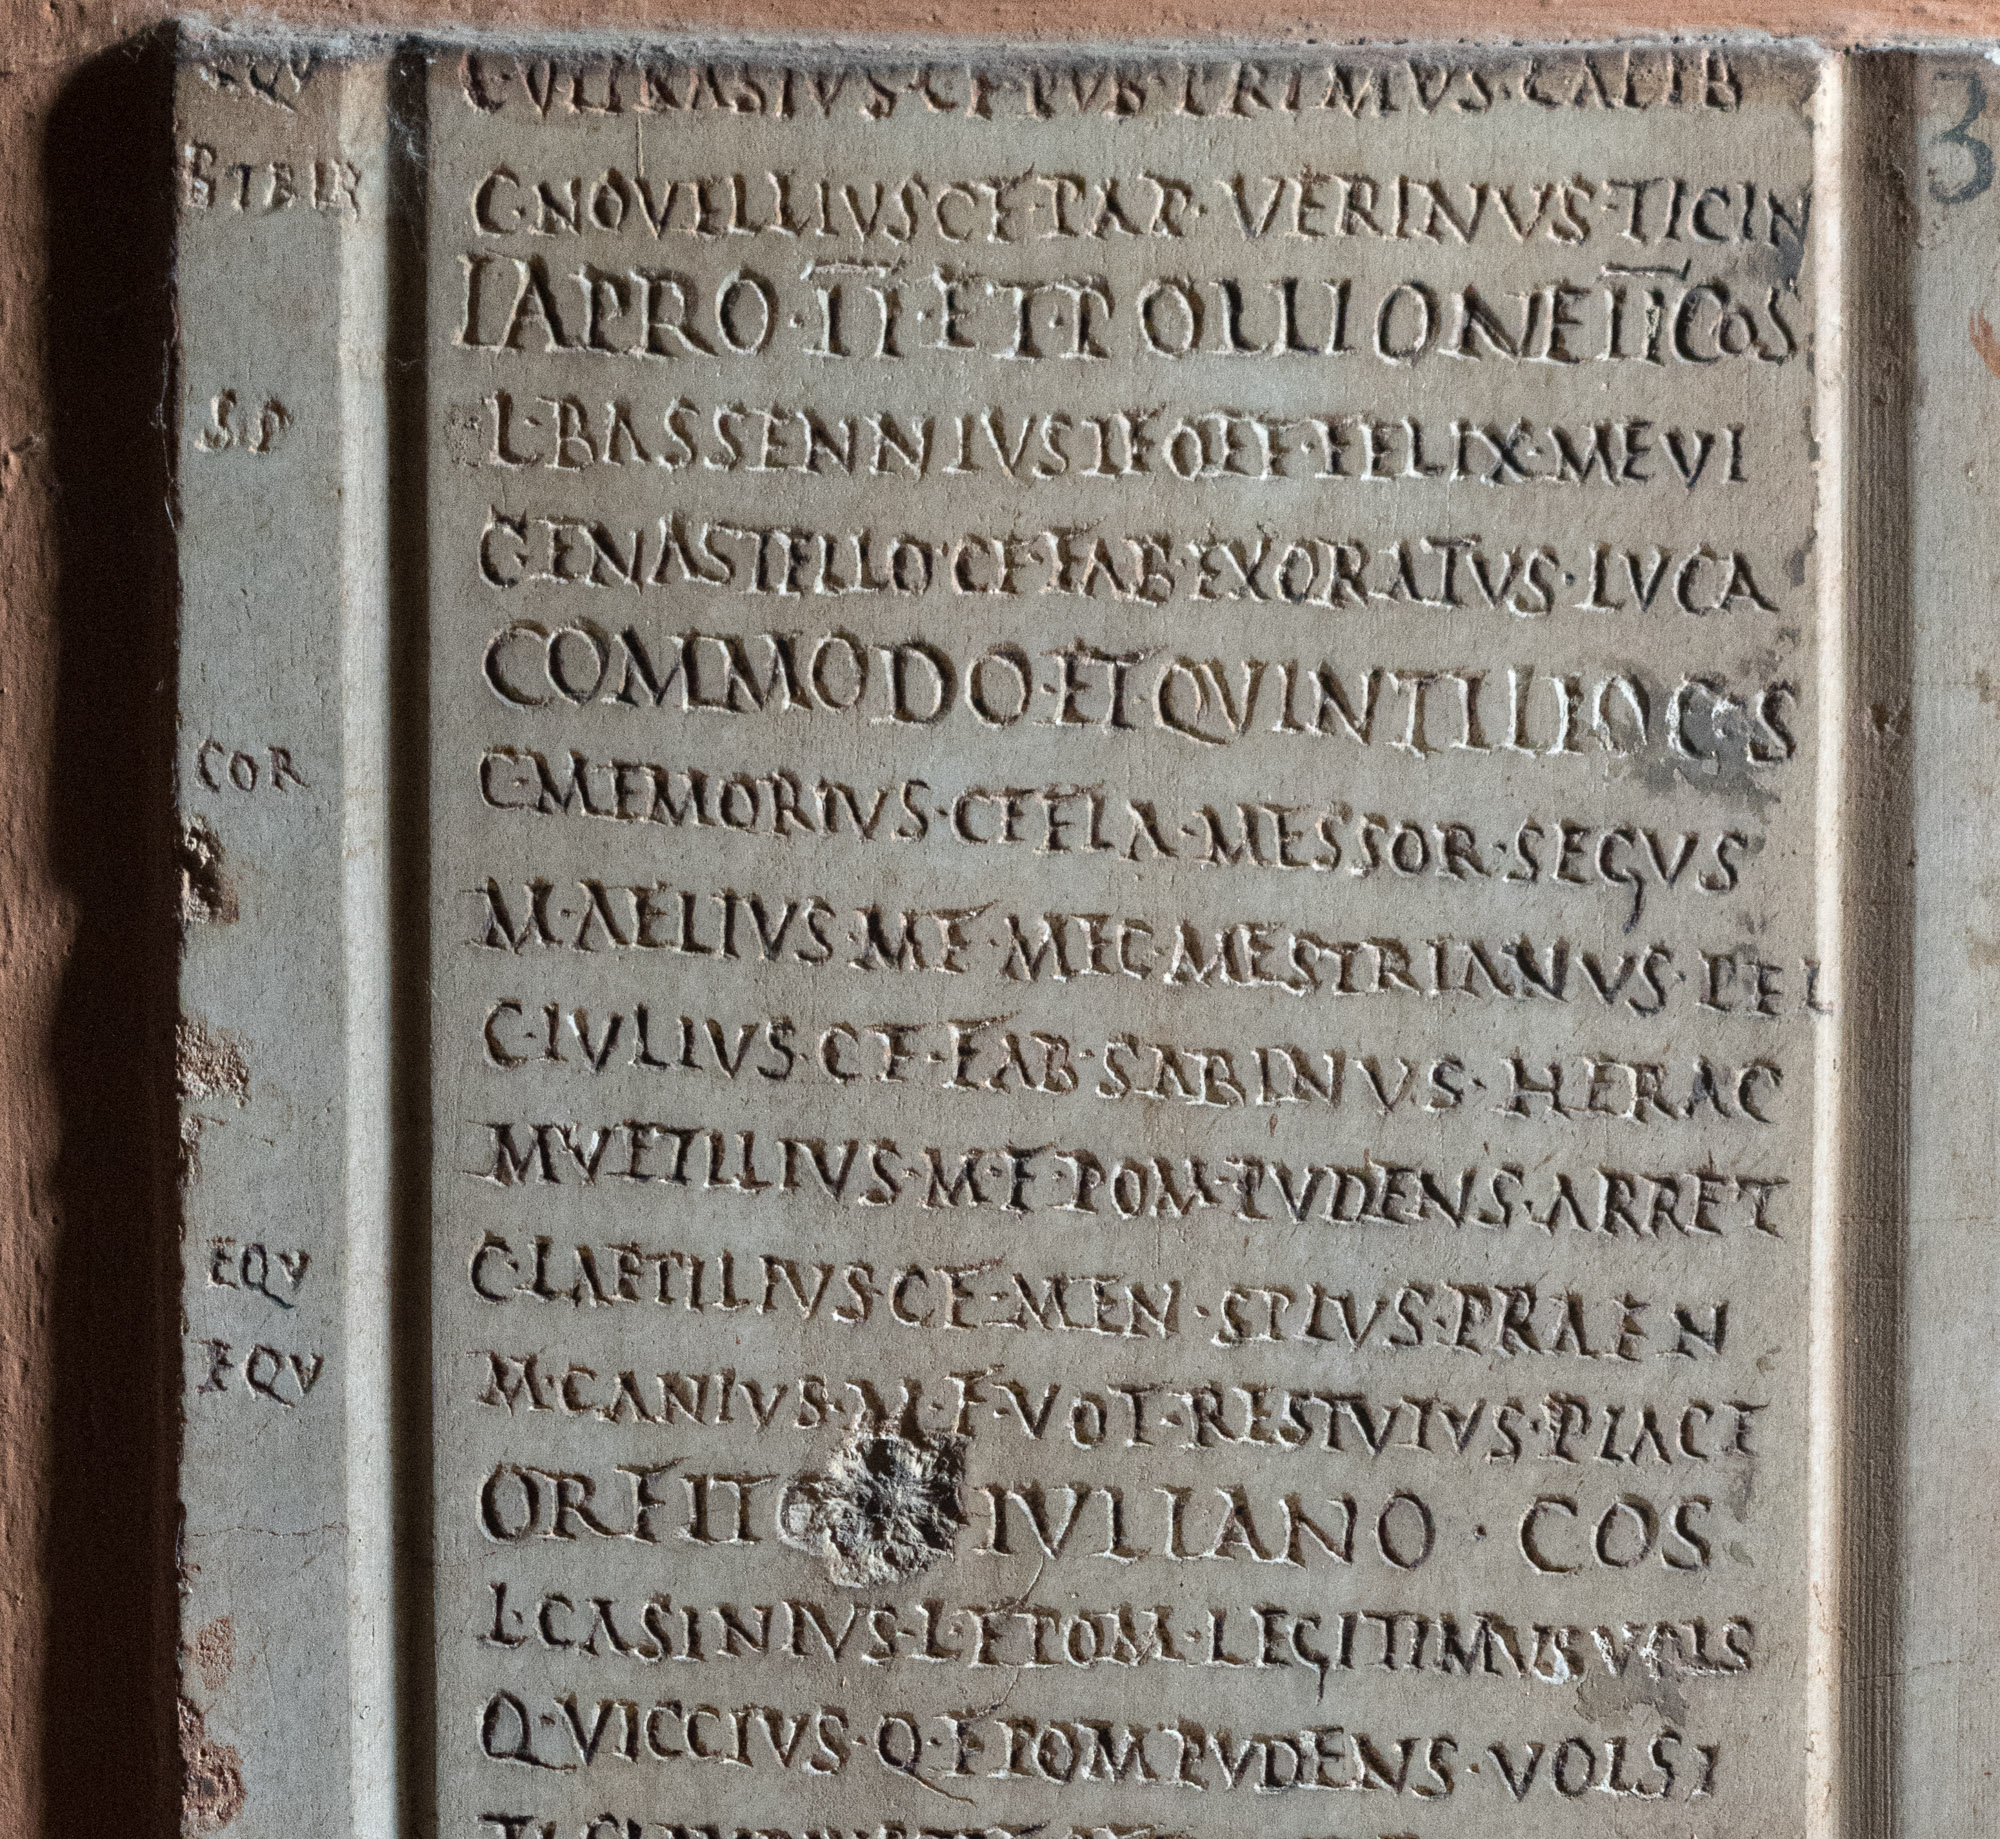 EQV C·VLINASIVS·C·F·PVB·PRIMVS·CALIB
BTRIB C·NOVELLIVS C F·PAP·VERINVS·TICIN
LAPRO·II·ET·POLLIONE II COS
S·P L·BASSENNIVS L F OFF·FELIX·MEVI
C ENASTELLO·C F·FAB·EXORATVS·LVCA
COMMODO·ET·QVINTILLO COS
COR C·MEMORIVS·C F FLA·MESSOR·SEGVS
M·AELIVS·M F·MEC·MESTRIANVS·PEL
C·IVLIVS·C F·FAB·SABINVS·HERAC
M VETILLIVS·M·F·POM·PVDENS·ARRET
EQV C·LAETILIVS·C F·MEN·SPIVS·PRAEN
EQV M·CANIVS·M·F·VOT·RESTVTVS·PLACE
ORFITO IVLIANO·COS
L·CASINIVS·L·F POM·LEGITIMVS VOLS
Q·VICCIVS·Q·F POM PVDENS·VOLSI